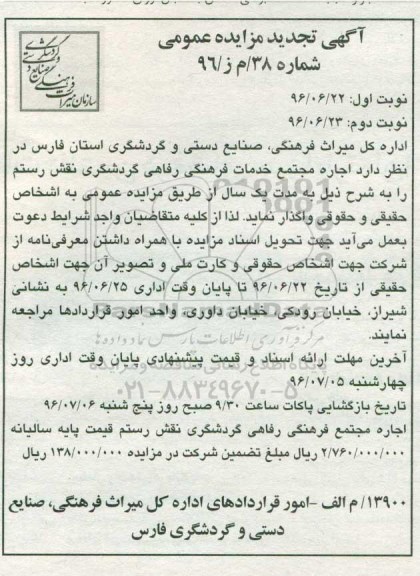 آگهی تجدید مزایده عمومی
شماره ۳۸/م ز/۹۶
سازمان میراث فرهنگی
صنایع دستی و
گردشگری
نوبت اول: ۹۶/۰۶/۲۲
نوبت دوم: ۹۶/۰۶/۲۳
اداره کل میراث فرهنگی، صنایع دستی و گردشگری استان فارس در
نظر دارد اجاره مجتمع خدمات فرهنگی رفاهی گردشگری نقش رستم
را به شرح ذیل به مدت یک سال از طریق مزایده عمومی به اشخاص
حقیقی و حقوقی واگذار نماید. لذا از کلیه متقاضیان واجد شرایط دعوت
بعمل می‌آید جهت تحویل اسناد مزایده با همراه داشتن معرفی‌نامه از
شرکت جهت اشخاص حقوقی و کارت ملی و تصویر آن جهت اشخاص
حقیقی از تاریخ ۹۶/۰۶/۲۲ تا پایان وقت اداری ۹۶/۰۶/۲۵ به نشانی
شیراز، خیابان رودکی، خیابان داوری، واحد امور قراردادها مراجعه
نمایند.
مرکز فرآوری اطلاعات پارس نماد داده‌ها
آخرین مهلت ارائه اسناد و قیمت پیشنهادی پایان وقت اداری روز
چهارشنبه ۹۶/۰۷/۰۵
۰۲۱-۸۸۳۴۹۶۷۰-۵
تاریخ بازگشایی پاکات ساعت ۹/۳۰ صبح روز پنج شنبه ۹۶/۰۷/۰۶
اجاره مجتمع فرهنگی رفاهی گردشگری نقش رستم قیمت پایه سالیانه
۲/۷۶۰/۰۰۰/۰۰۰ ریال مبلغ تضمین شرکت در مزایده ۱۳۸/۰۰۰/۰۰۰ ریال
۱۳۹۰۰/م الف -امور قراردادهای اداره کل میراث فرهنگی، صنایع
دستی و گردشگری فارس